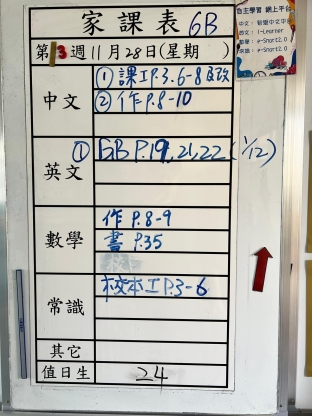 家課表 6B
第13週11月28日(星期 )
中文
① 課工P.3.6-8及改
② 作P.8-10
英文
① GB P.19,21,22 (1/12)
數學
作 P.8-9
書 P.35
常識
校本工P.3-6
其它
值日生 24
自主學習 網上平台
i-Learner
e-Smart2.0
e-Smart2.0